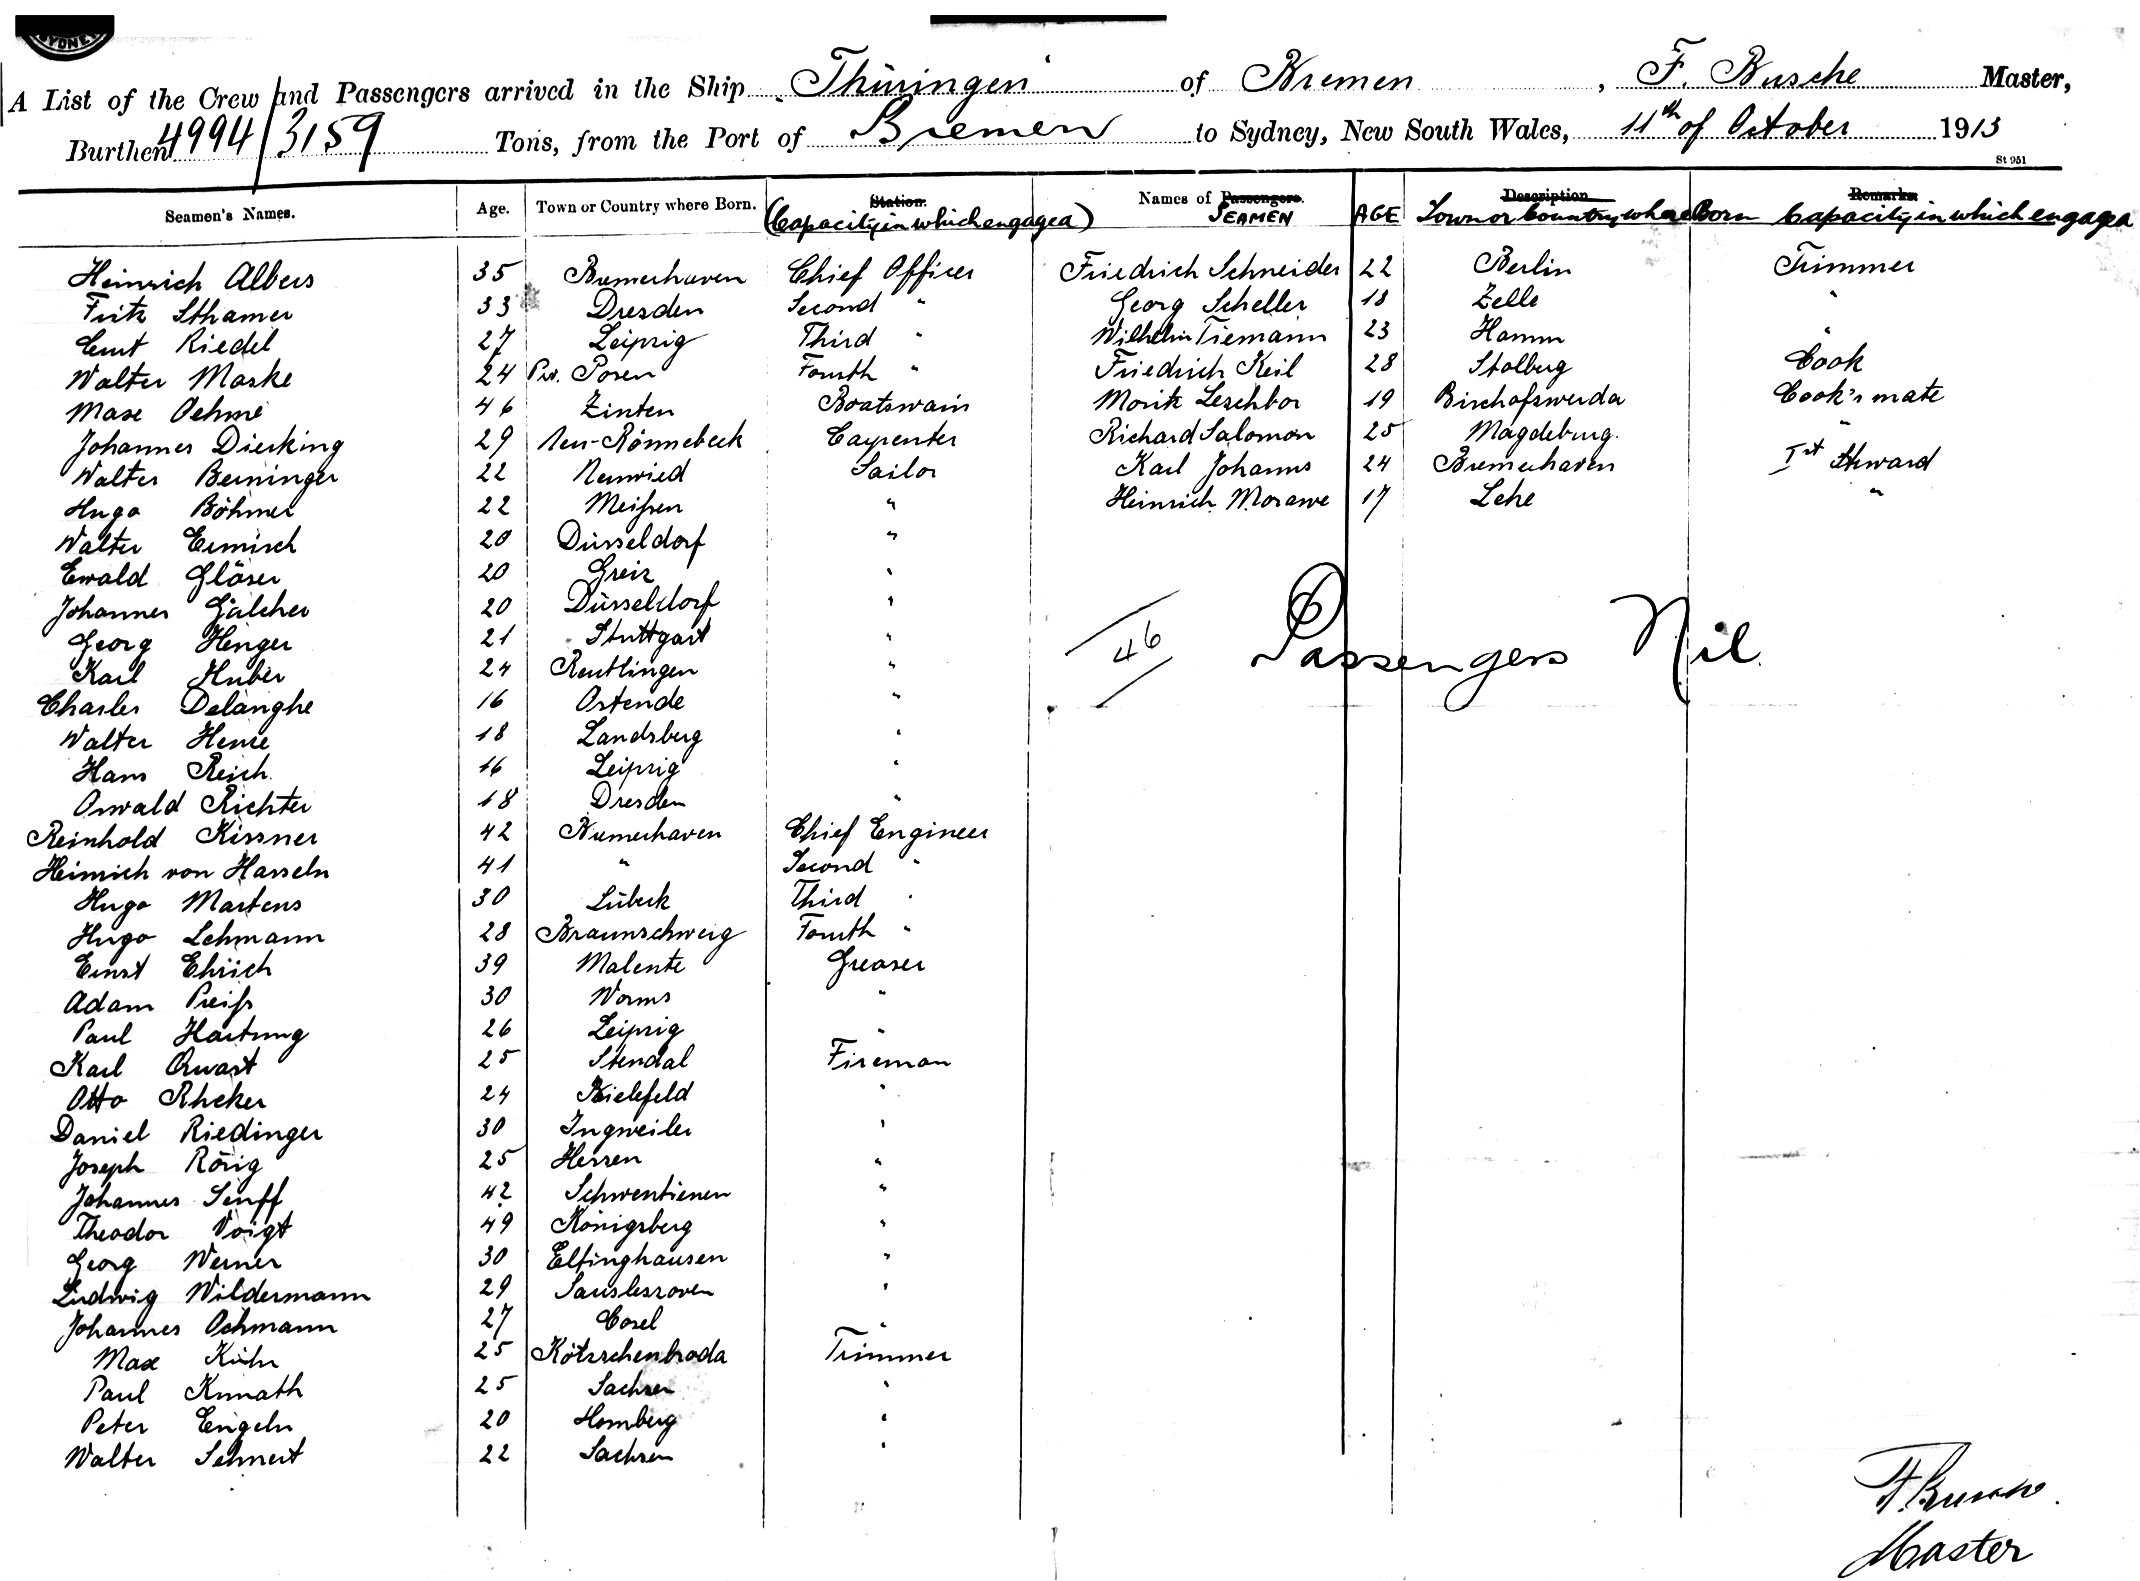 SYDNEY
A List of the Crew and Passengers arrived in the Ship Thüringen of Bremen, F. Busche Master,
Burthen 4994/3159 Tons, from the Port of Bremen to Sydney, New South Wales, 11th of October 1913
St 951
Seamen's Names. Age. Town or Country where Born. Station. Names of Passengers. Description Remarks
(Capacity in which engaged) SEAMEN AGE Town or Country where Born Capacity in which engaged
Heinrich Albers 35 Bremerhaven Chief Officer Friedrich Schneider 22 Berlin Trimmer
Fritz Sthamer 33 Dresden Second " Georg Scheller 18 Zelle "
Curt Riedel 27 Leipzig Third " Wilhelm Tiemann 23 Hamm "
Walter Maske 24 Pr. Posen Fourth " Friedrich Keil 28 Stolberg Cook
Max Oehme 46 Zinten Boatswain Moritz 19 Bischofswerda Cook's mate
Johannes Dierking 29 Neu-Rönnebeck Carpenter Richard Salomon 25 Magdeburg. "
Walter Beininger 22 Neuwied Sailor Karl Johanns 24 Bremerhaven Ist Steward
Hugo Böhmer 22 Meißen " Heinrich Morawe 17 Lehe "
Walter Ermisch 20 Düsseldorf "
Ewald Gläser 20 Greiz "
Johannes Gälcher 20 Düsseldorf "
Georg Henger 21 Stuttgart "
Karl Huber 24 Reutlingen "
46 Passengers Nil.
Charles Delanghe 16 Ostende "
Walter Hense 18 Landsberg "
Hans Reich 16 Leipzig "
Oswald Richter 18 Dresden "
Reinhold Kissner 42 Bremerhaven Chief Engineer
Heinrich von Hasseln 41 " Second "
Hugo Martens 30 Lübeck Third "
Hugo Lehmann 28 Braunschweig Fourth "
Ernst Ehrich 39 Malente Greaser
Adam Preiß 30 Worms "
Paul Hartung 26 Leipzig "
Karl Qwast 25 Stendal Fireman
Otto Rheker 24 Bielefeld "
Daniel Riedinger 30 Ingweiler "
Joseph Rörig 25 Hessen "
Johannes Senff 42 Schwentienen "
Theodor Voigt 49 Königsberg "
Georg Werner 30 Elfinghausen "
Ludwig Wildermann 29 "
Johannes Ochmann 27 Cosel "
Max Kühn 25 Kötzschenbroda Trimmer
Paul Kunath 25 Sachsen "
Peter Engeln 20 Homberg "
Walter Sehnert 22 Sachsen "
F. Busche
Master